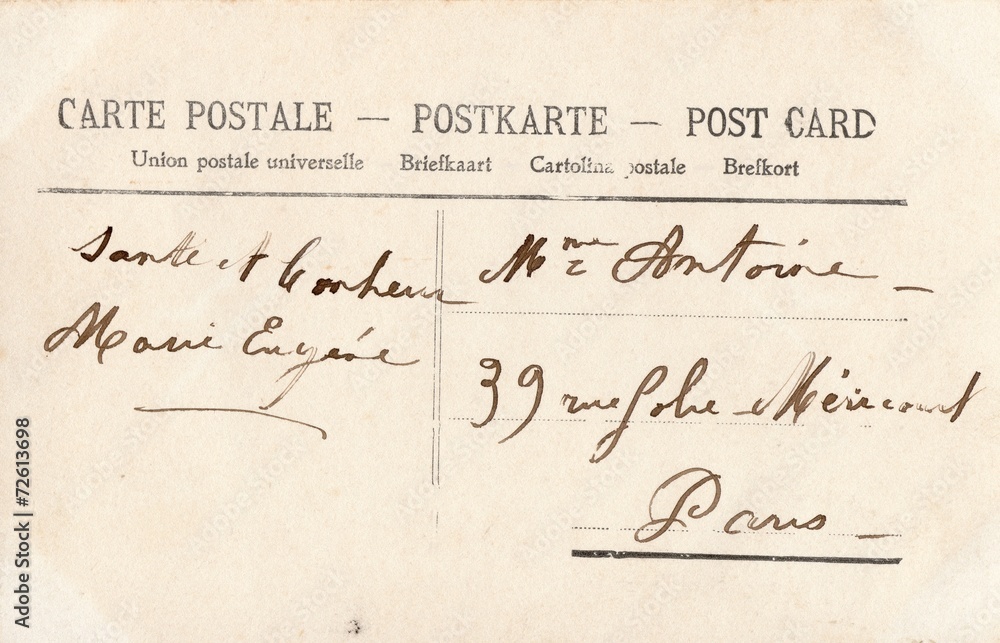 CARTE POSTALE — POSTKARTE — POST CARD
Union postale universelle Briefkaart Cartolina postale Brefkort
Santé et bonheur
Marie Eugénie
Mme Antoine
39 rue Folie Méricourt
Paris
Adobe Stock | #72613698